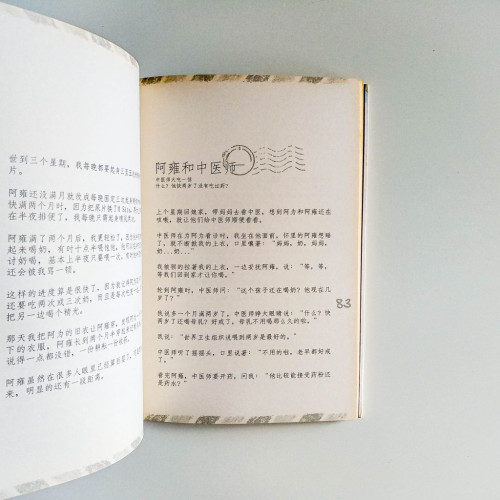 世到三个星期,我每晚都要起身三至五
片。
阿雍还没满月就改成每晚固定三次
快满两个月时,因为把尿片换了
在半夜排便了,我每晚只需起身
阿雍满了两个月后,我更轻松了,
起来喝奶,有时十点半喂他
讨奶喝,基本上半夜只要喂一次,
还会被我骂一顿。
这样的进度算是很快了,因为就
还要吃两次或三次奶,而且是
把另一边喝个精光。
那天我把阿为的旧衣让阿雍穿,
下的衣服,阿雍长到两个月半
说得一点都没错,一份耕耘一份收获。
阿雍虽然在很多人眼里已经算
来,明显的还有一段距离。
阿雍和中医师
中医师大吃一惊
什么?他快两岁了还有吃母奶?
上个星期回娘家,带妈妈去看中医,想到阿为和阿雍还在
咳嗽,就让他们给中医师顺便看看。
中医师在为阿为看诊时,我坐在他面前,怀里的阿雍想睡
了,就不断掀我的上衣,口里嚷着:“妈妈,奶,妈妈,
奶...奶...”
我狼狈的拉着我的上衣,一边安抚阿雍,说:“等,等,
等我们回到家才让你喝。”
轮到阿雍时,中医师问:“这个孩子还在喝奶?他现在几
岁了?”
我说多一个月满两岁了,中医师睁大眼睛说:“什么?快
两岁了还喝母乳?好戒了,母乳不用喝那么久的啦。”
我说:“世界卫生组织说喂到两岁是最好的。”
中医师听了摇摇头,口里说着:“不用的啦,老早都好戒
了。”
看完阿雍,中医师要开药,问我:“他比较能接受药粉还
是药水?”
83